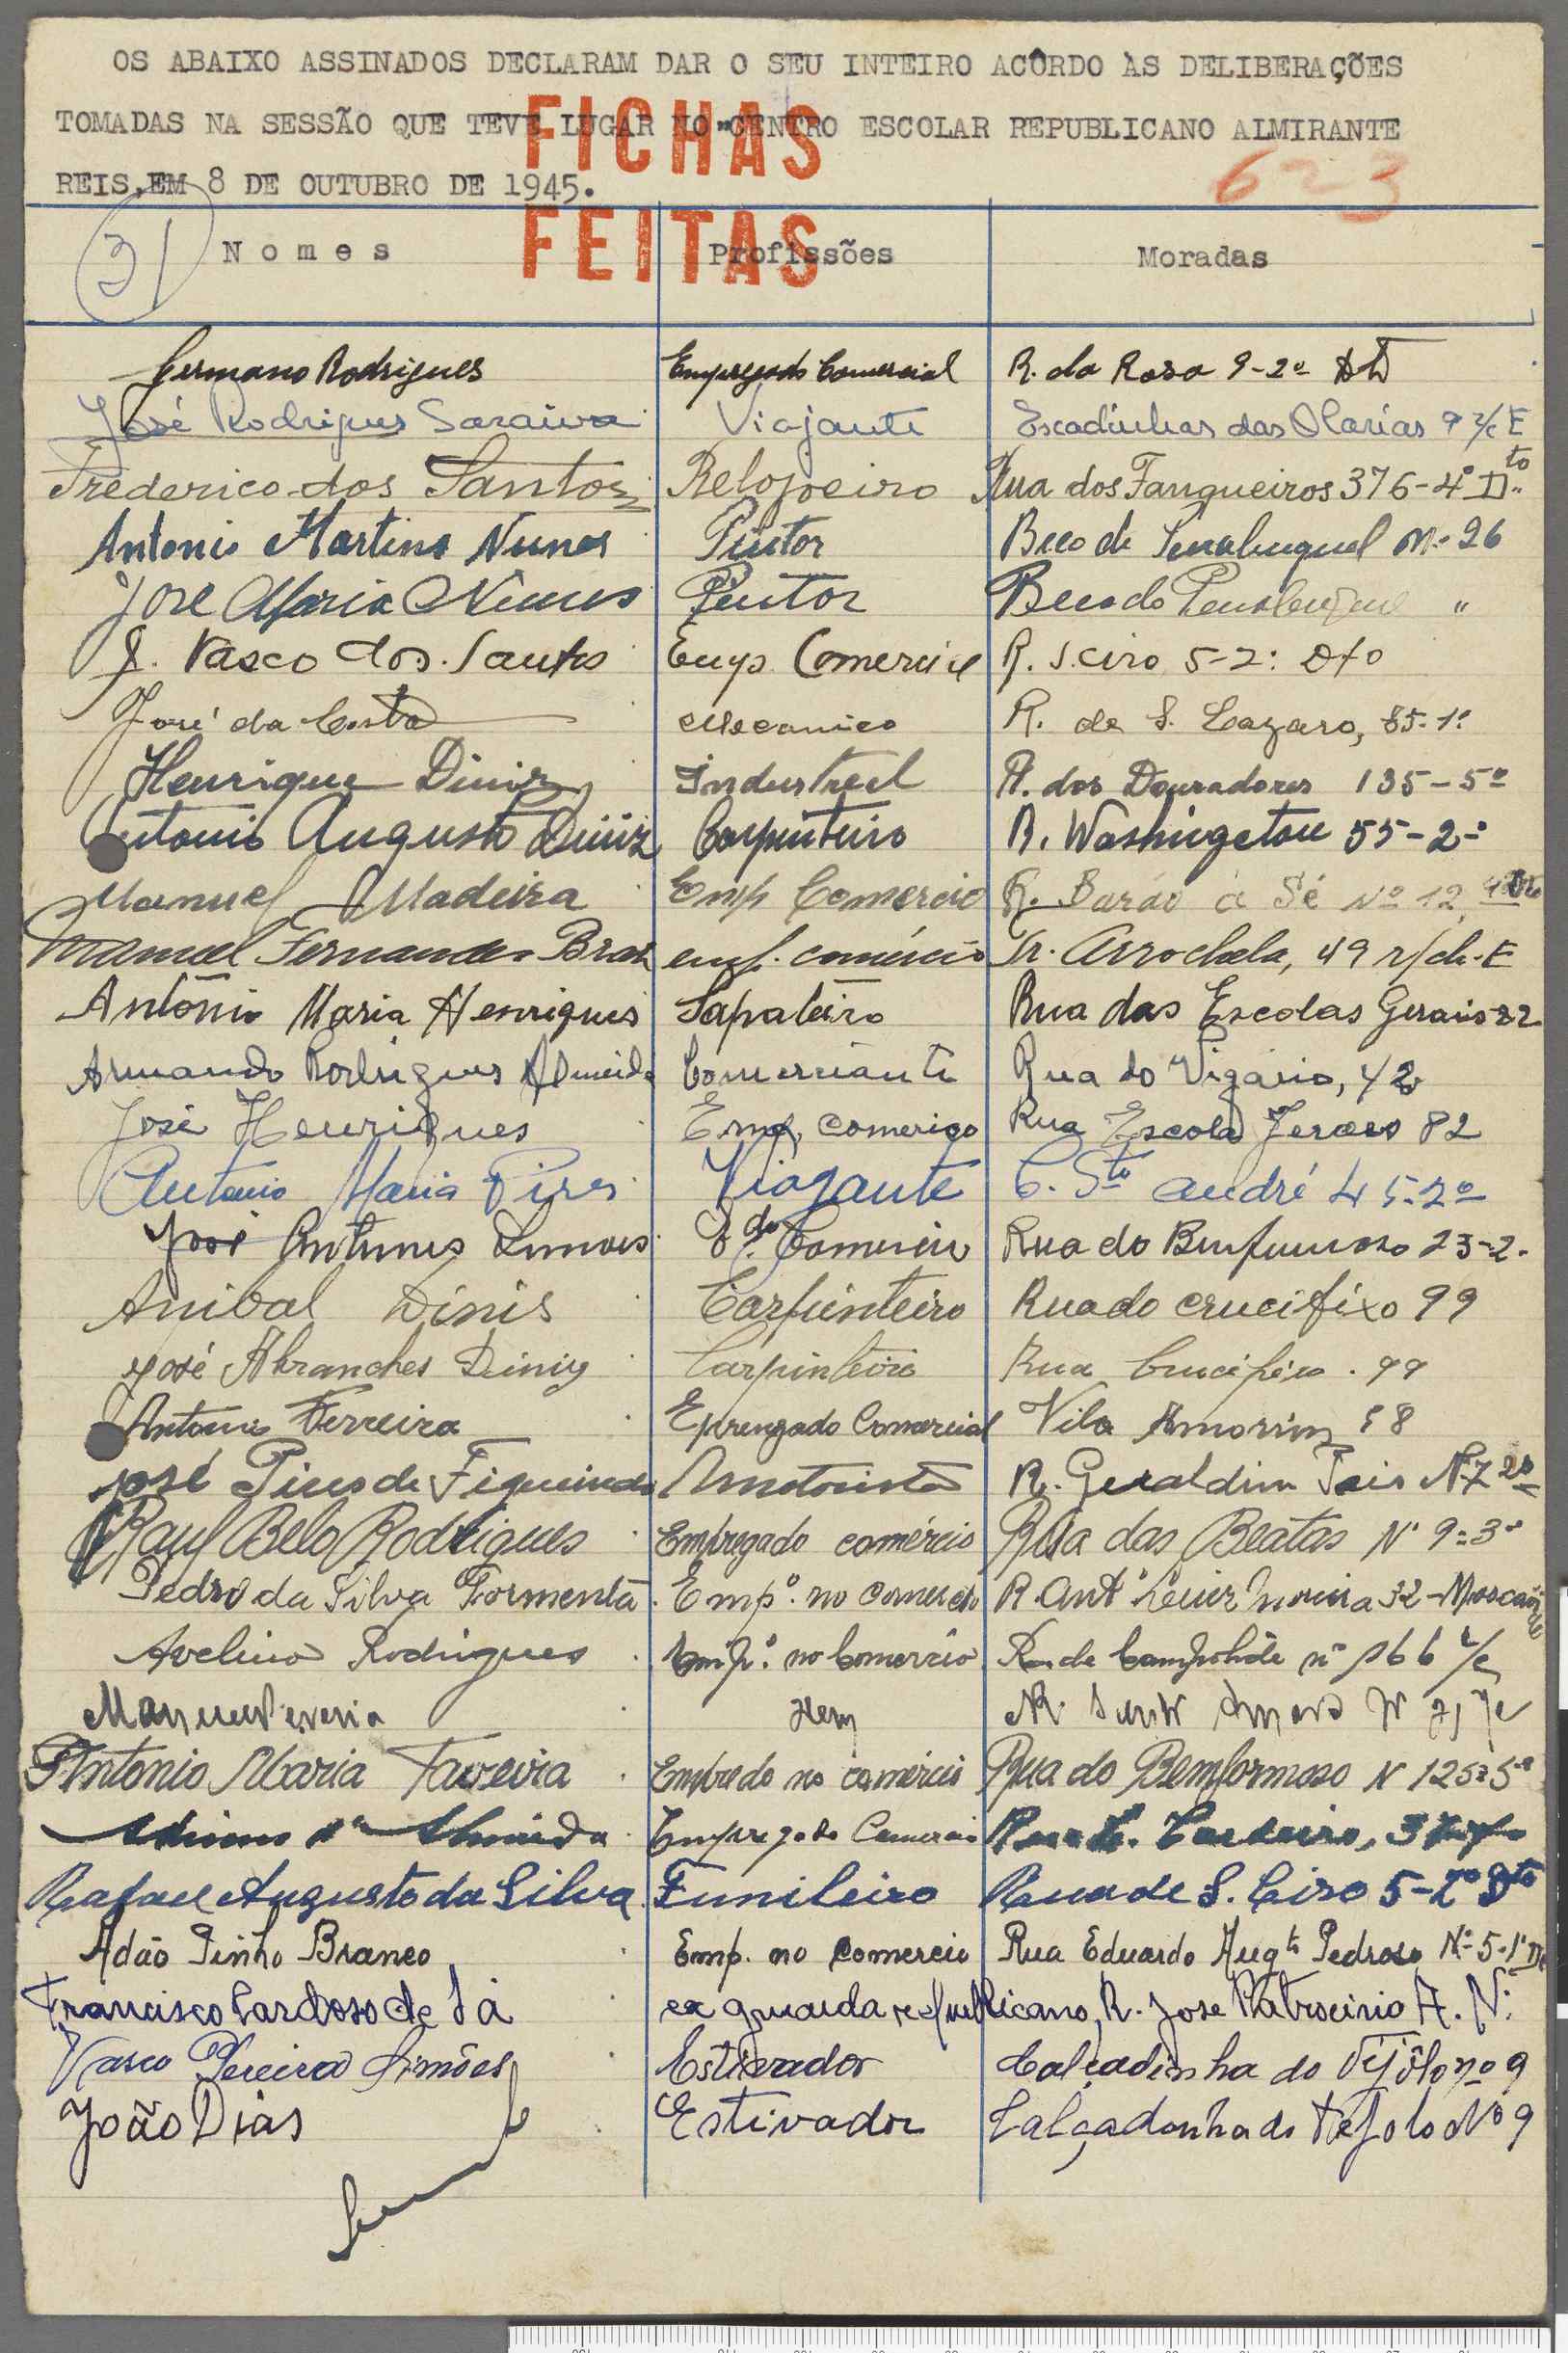 OS ABAIXO ASSINADOS DECLARAM DAR O SEU INTEIRO ACÔRDO ÀS DELIBERAÇÕES
TOMADAS NA SESSÃO QUE TEVE LUGAR NO CENTRO ESCOLAR REPUBLICANO ALMIRANTE
REIS, EM 8 DE OUTUBRO DE 1945.
FICHAS
FEITAS
623
31
Nomes Profissões Moradas
Germano Rodrigues Empregado Comercial R. da Rosa 9-2º Dto
José Rodrigues Saraiva Viajante Escadinhas das Olarias 9 r/c E
Frederico dos Santos Relojoeiro Rua dos Fanqueiros 376-4º Dto
Antonio Martins Nunes Pintor Beco de Penabuquel Nº 26
José Maria Nunes Pintor Beco do Penabuquel "
J. Vasco dos Santos Emp Comercial R. S. Ciro 5-2º Dto
José da Costa Mecanico R. de S. Lazaro, 85-1º
Henrique Diniz Industrial R. dos Douradores 135-5º
Antonio Augusto Diniz Carpinteiro R. Washigeton 55-2º
Manuel Madeira Emp Comercio R. Barão à Sé Nº 12 4º Dto
Manuel Fernandes Braz emp. comércio Tr. Arrochela, 49 r/ch. E
António Maria Henriques Sapateiro Rua das Escolas Gerais 82
Armando Rodrigues Almeida Comerciante Rua do Vigário, 42
José Henriques Emp. comerico Rua Escola Jeraes 82
Antonio Maria Pires Viagante C. Sto André 45-2º
José Antunes Simões E.do Comercio Rua do Benformoso 23-2.
Anibal Dinis Carpinteiro Rua do crucifixo 99
José Abranches Diniz Carpinteiro Rua Crucifixo. 99
Antonio Ferreira Eprengado Comercial Vila Amorim 18
José Pires de Figueiredo Motorista R. Geraldim Pais Nº 7 2º
Raul Belo Rodrigues Empregado comércio Rua das Beatas Nº 9-3º
Pedro da Silva Tormenta Empº. no comercio R. Antº Moreira 32-Moscavide
Avelino Rodrigues Empº. no Comercio R. de Campolide nº 166 r/c
Manuel Idem R. Santo Amaro Nº r/c
Antonio Maria Taveira Empredo no comércio Rua do Bemformoso Nº 125-5º
Almeida Empregado Comercial Rua L. Cordeiro, 37
Rafael Augusto da Silva Funileiro Rua de S. Ciro 5-2º Dto
Adão Pinho Branco Emp. no comercio Rua Eduardo Augto Pedroso Nº 5-1º D
Francisco Cardoso de Sá ex guarda republicano, R. Jose Patrocinio A. N.
Vasco Pereira Simões Estivador Calçadinha do Tijôlo nº 9
João Dias Estivador Calçadanha do Tejolo Nº 9